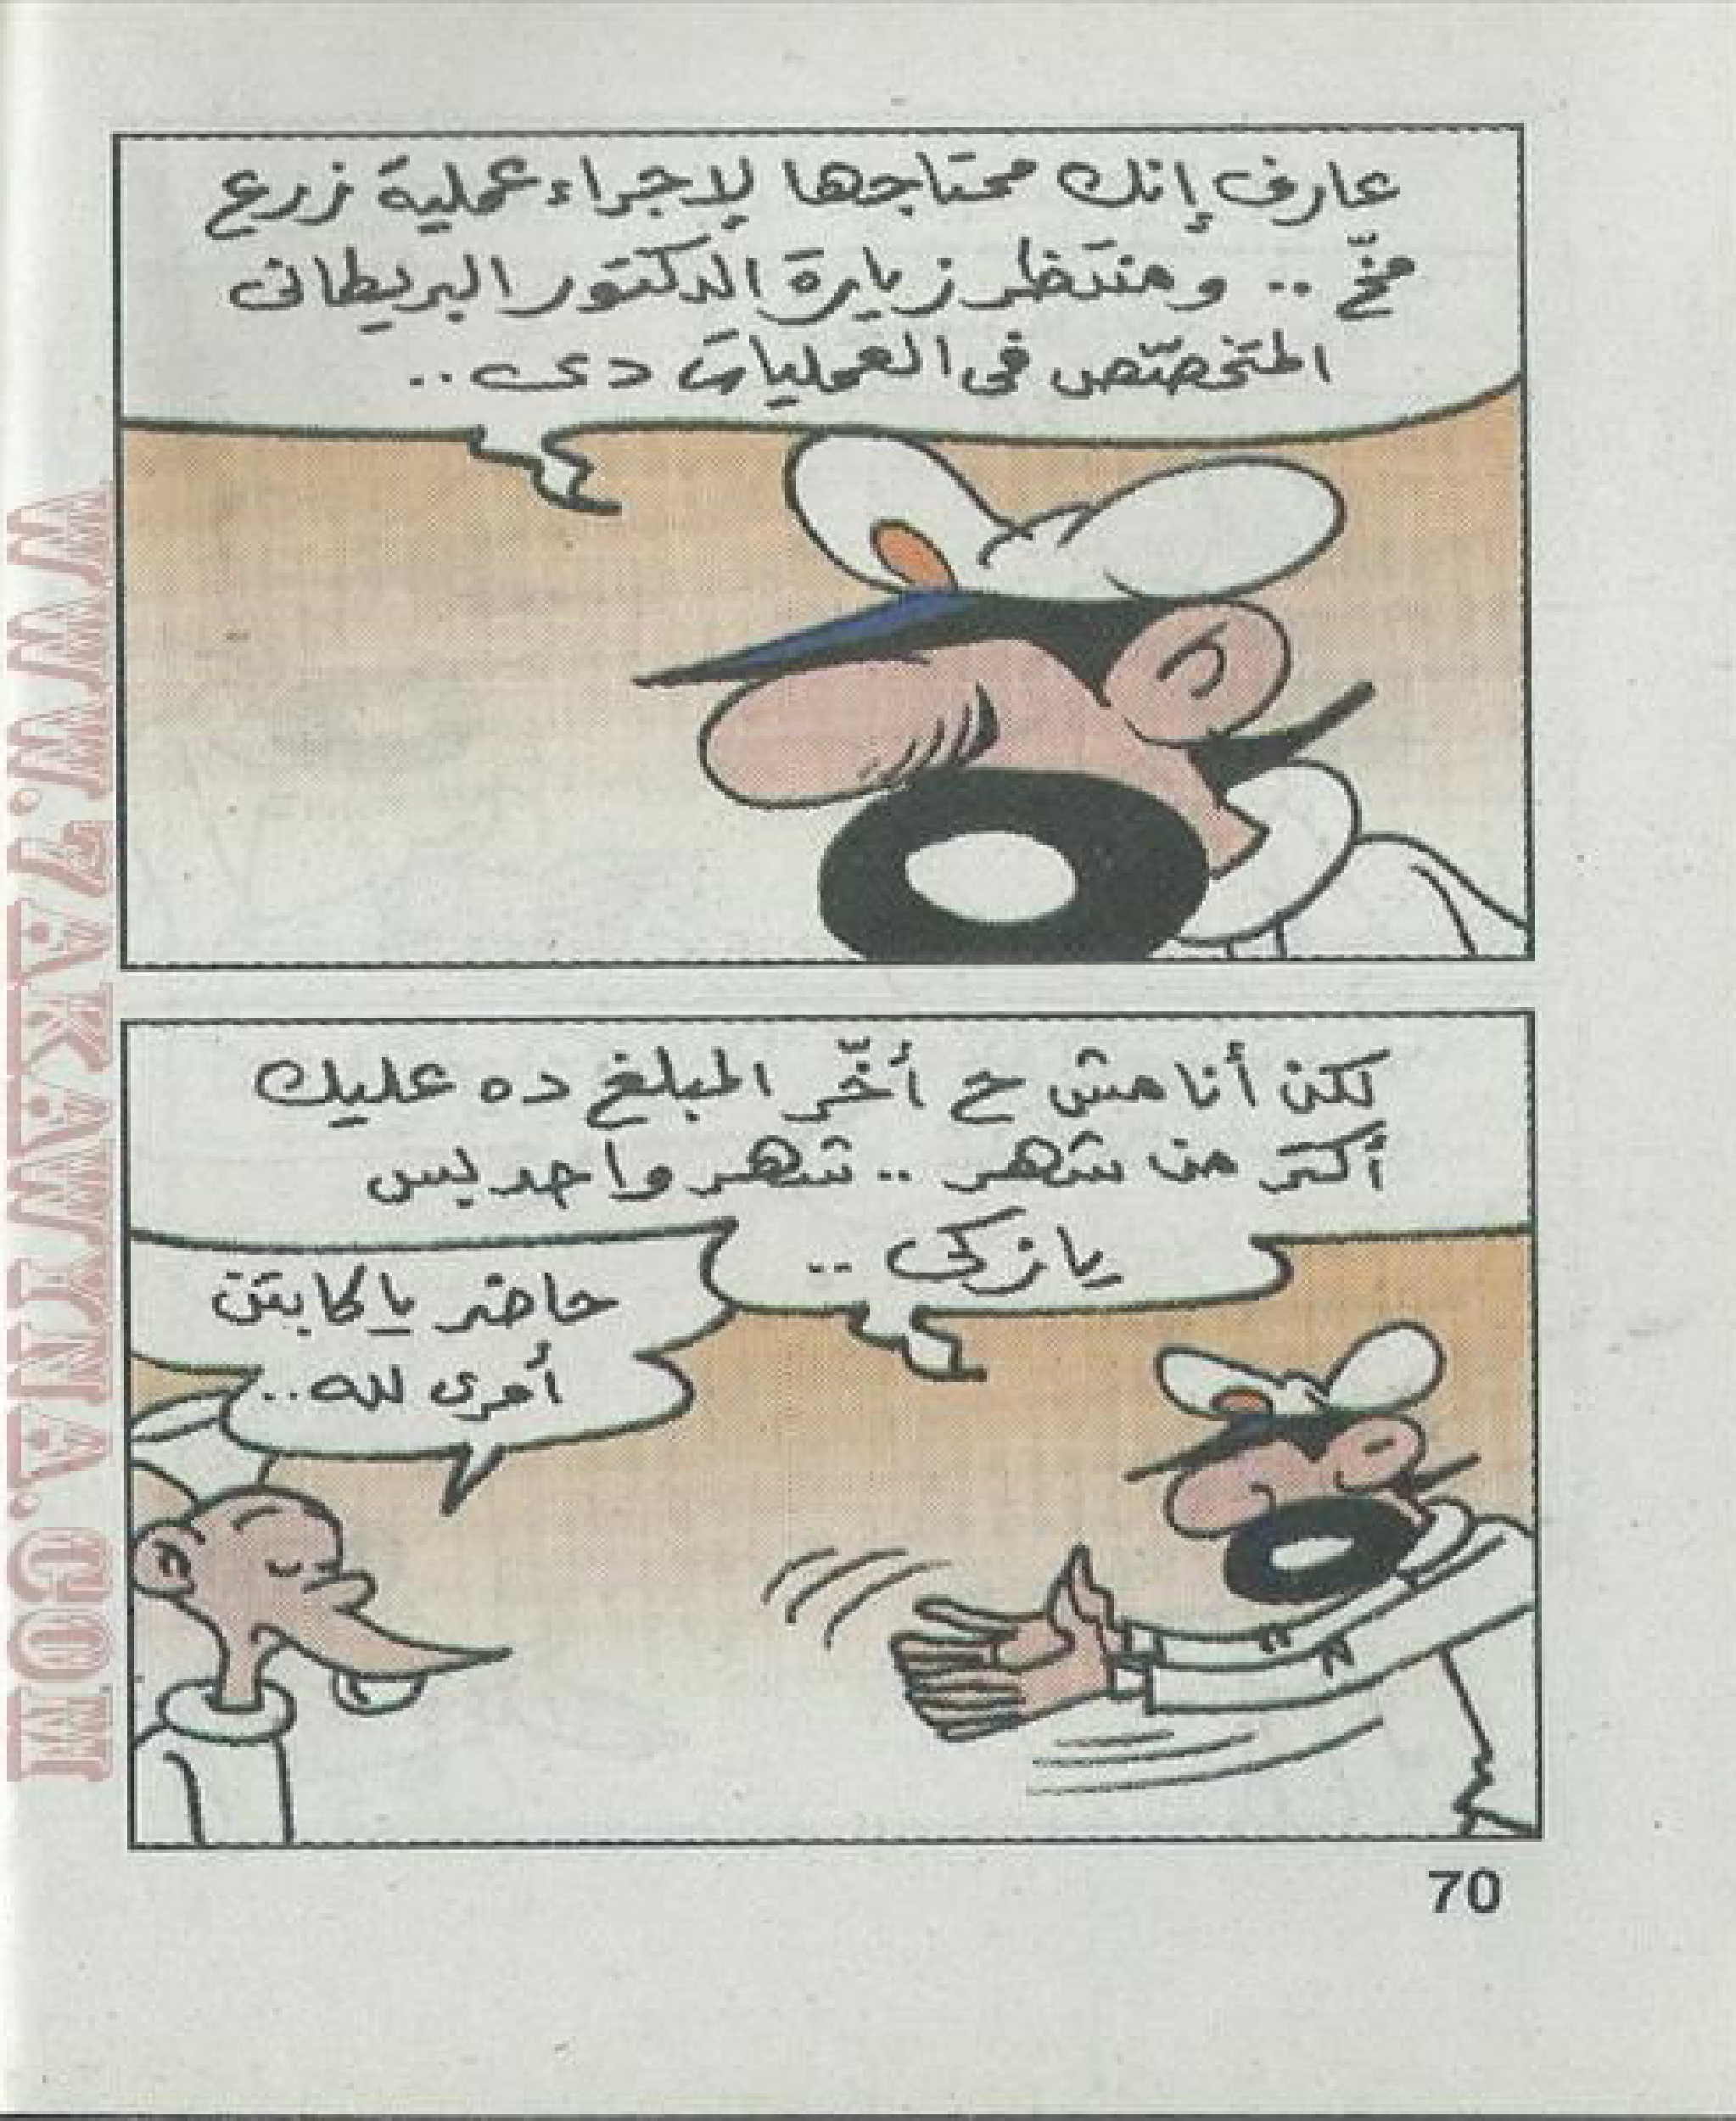 عارف إنك محتاجها لإجراء عملية زرع
مخّ .. ومنتظر زيارة الدكتور البريطانى
المتخصّص فى العمليات دى ..
لكن أنا مش ح أخّر المبلغ ده عليك
أكتر من شهر .. شهر واحد بس
يا زكى ..
حاضر يا كابتن
أمرى لله ..
70
WWW.ZAKAWINNA.COM